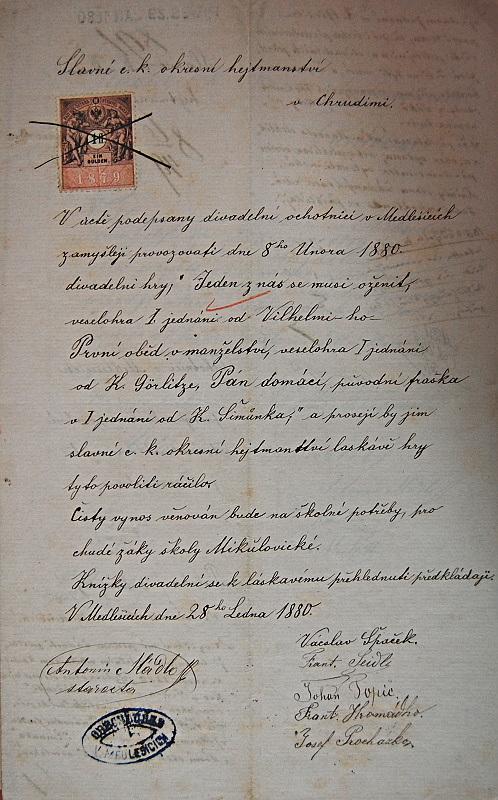 Slavné c. k. okresní hejtmanství
v Chrudimi.
1 fl.
EIN
GULDEN
1879
V úctě podepsaný divadelní ochotníci v Medlešicích
zamýšlejí provozovati dne 8ho Února 1880.
divadelní hry, "Jeden z nás se musí oženit,
veselohra I jednání od Vilhelmi-ho
První oběd v manželství, veselohra I jednání
od K. Görlitze, Pán domácí, původní fraška
v I jednání od K. Šimůnka," a prosejí by jim
slavné c. k. okresní hejtmanství laskavě hry
tyto povoliti ráčilo.
Čistý výnos věnován bude na školné potřeby, pro
chudé žáky školy Mikulovické.
Knížky divadelní se k láskavému přehlednutí předkládají.
V Medlešicích dne 28ho Ledna 1880.
Václav Špaček.
Frant. Seidl
Antonín Mádle
starosta
Johan Topič.
Frant. Hromádko.
Josef Procházka.
V MEDLEŠICÍCH